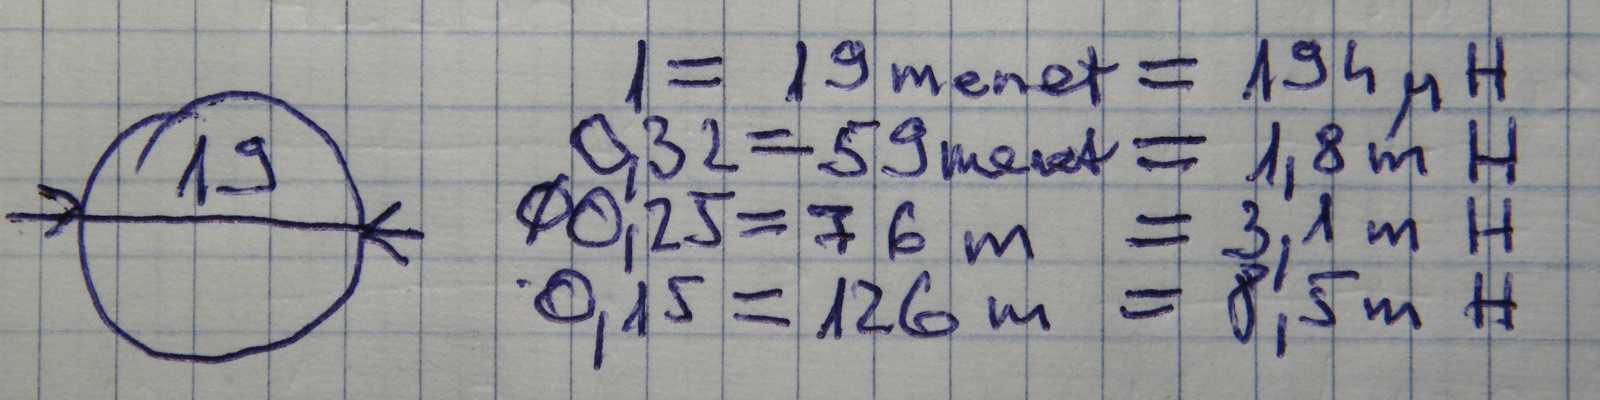 19
1 = 19 menet = 194 μH
0,32 = 59 menet = 1,8 mH
Ø0,25 = 76 m = 3,1 mH
0,15 = 126 m = 8,5 mH